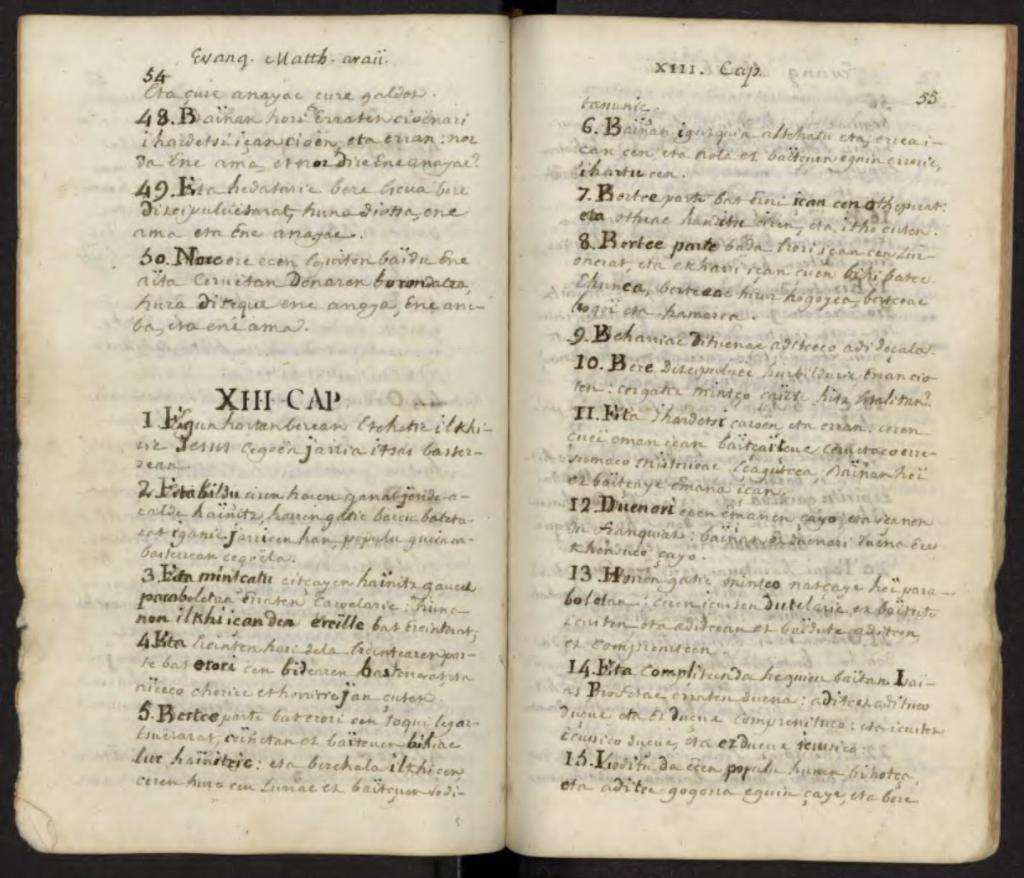 Evang. Matth. araü.
54
Eta çure anayac çure galdoz.
48. Baïñan hori erraten cioënari
ihardetsi içan cioën, eta erran: nor
da ene ama, et nor dire ene anayac?
49. Eta hedatoric bere escua bere
Discipuluetarat, huna diotsa, ene
ama eta ene anayac.
50. Norc ere ecen eguiten baïdu ene
aïta Ceruetan Denaren borondatea,
hura diteque ene anaya, ene arre-
ba, eta ene ama.
XIII CAP
1. Egun hortan berean Etchetic ilkhi-
ric Jesus cegoën jarria itsas baster-
rean.
2. Eta bildu ciren haren ganat jende o-
calde haïnitz, haren gatic barcu bateta-
rat iganic jarri cen han, populu gucia
basterrean cegoëla.
3. Eta mintcatu citçayen haïnitz gauça
paraboletan erraten çaroelaric: huna
non ilkhi ican den ereïlle bat ereiterat,
4. Eta ereiten hari dela ereintçaren par-
te bat erori cen bidearen bazterrerat, eta
aïreco choriec ethorriric jan çuten
5. Bertce parte bat erori cen toqui legar-
tsuetarat, ceinetan ez baïtçuen bihiac
lur haïnitzic: eta berehala ilkhi cen
ceren hura cen lurrac ez baïtçuen lodi-
XIII. Cap.
55
tasunic.
6. Baïñan iguzquia altchatu eta, errea i-
can cen, eta nola ez baïtçuen eguin erroric,
ihartu cen.
7. Bertce parte bat erori içan cen othepurat:
eta otheac handitu ciren, eta itho çuten.
8. Bertce parte bada erori içan cen lur
onerat, eta ekharri içan çuen bihi batec
Ehunca, bertceac hirur hogoyca, bertceac
hogoi eta hamarca.
9. Beharriac Dituenac aditceco adi deçala.
10. Bere Discipuluec hurbilduric erran cio-
ten: cergatic mintço çaizte hitz itzalitan?
11. Eta Ihardetsi çaroen eta erran: ceren
çuei eman içan baïtçaitçue Ceruetaco erre-
sumaco misterioac Eçagutcea. Baïñan heï
ez baïtçaye emana içan.
12. Duenari ecen emanen çayo, eta içanen
da franquiac: baïñan ez duenari duena ere
khenduco çayo.
13. Horren gatic mintço natçaye heï para-
boletan: ceren icusten dutelaric ez baïtute
icusten eta aditcean ez baïdute aditcen,
ez comprenitcen.
14. Eta complitcen da hequien baïtan Isaï-
as Profetac erraten duena: aditcez adituco
duçue eta Ez duçue comprenituco: eta icusten
icusico duçue, eta ez duçue icusico.
15. Lioditu da ecen populu hunen bihotça,
eta aditce gogorra eguin çaye, eta bere